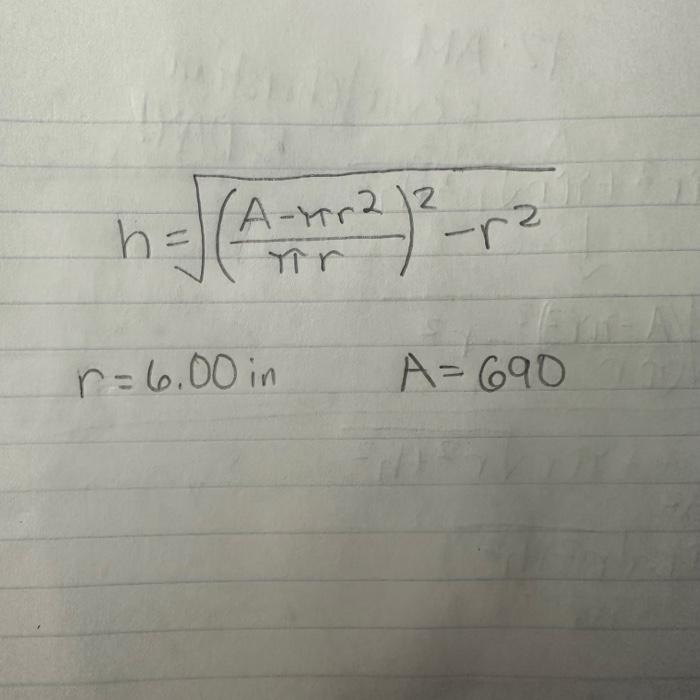 h = √((A - πr²)/(πr))² - r²
r = 6.00 in A = 690